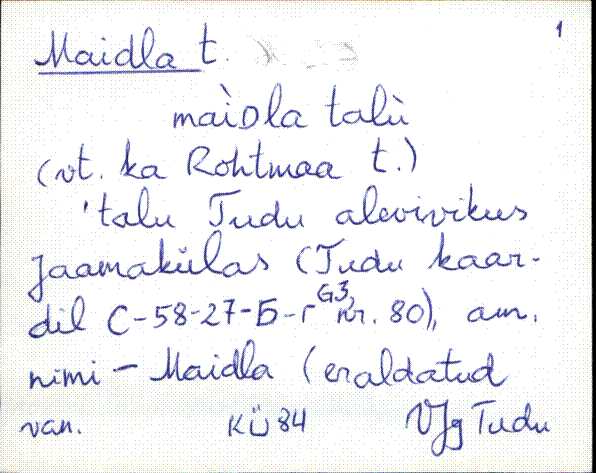 1
Maidla t.
maìᴅla talù
(vt. ka Rohtmaa t.)
'talu Tudu alevivikus
Jaamakülas (Tudu kaar-
dil C-58-27-Б-г G3, nr. 80), am.
nimi - Maidla (eraldatud
van. KÜ 84 VJg Tudu